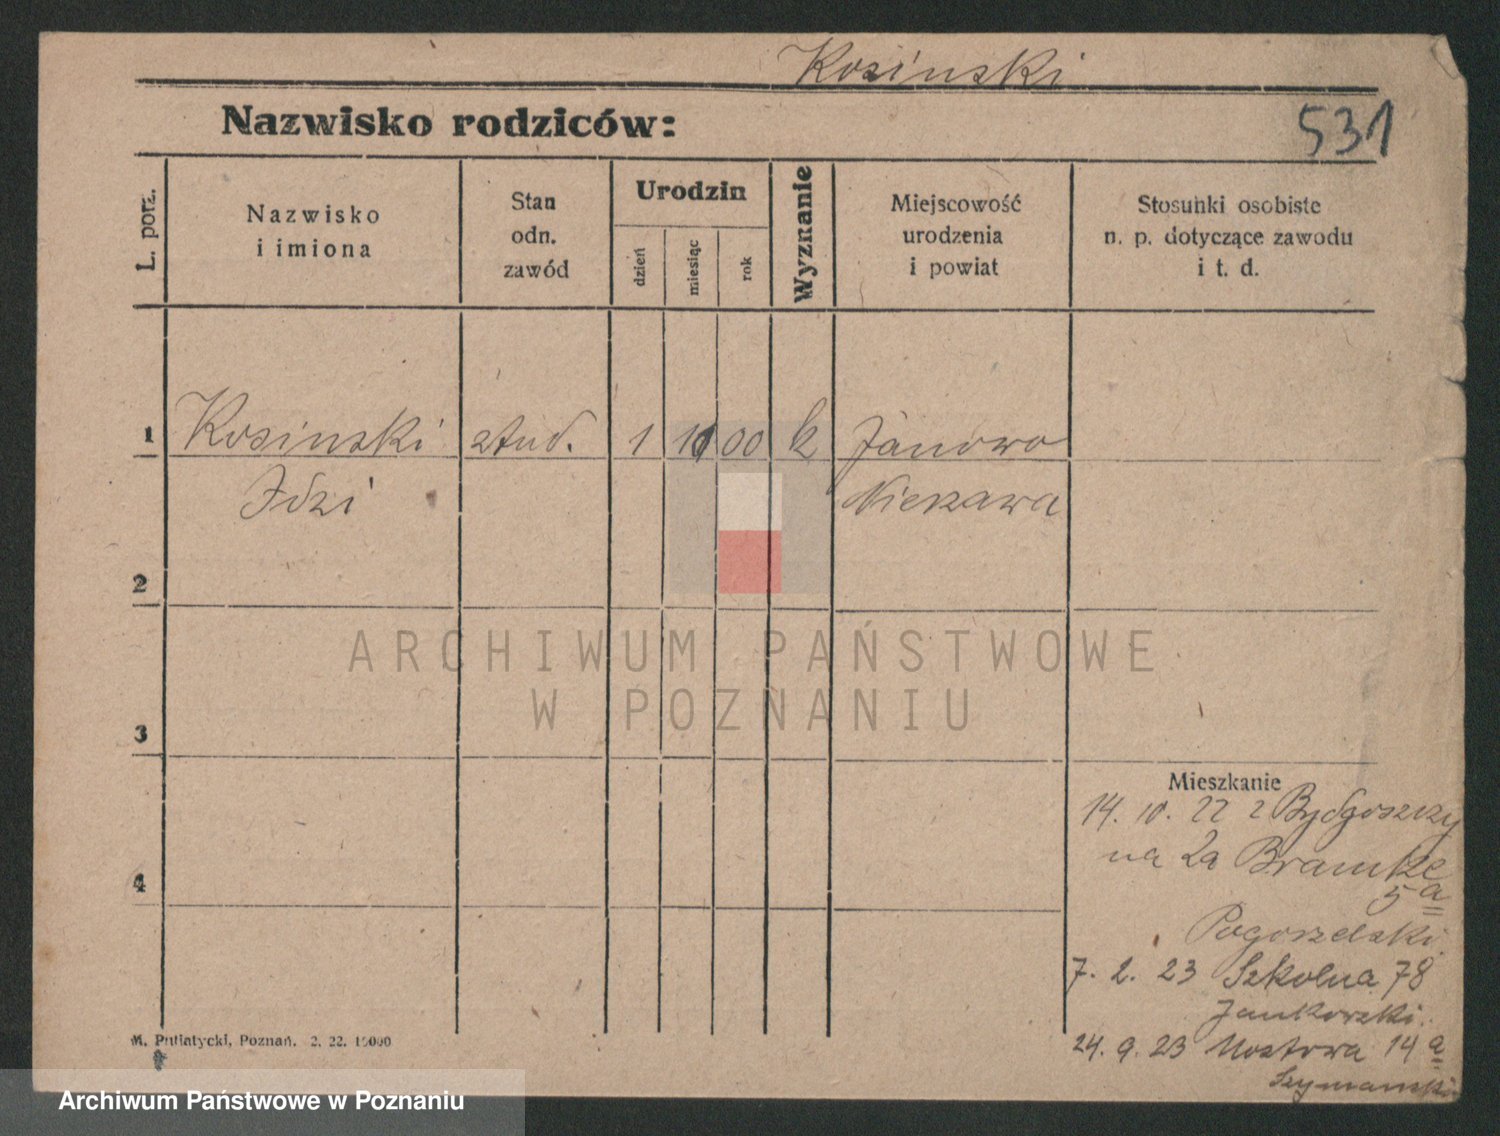 Kosinski
Nazwisko rodziców:
531
L. porz.
Nazwisko
i imiona
Stan
odn.
zawód
Urodzin
dzień
miesiąc
rok
Wyznanie
Miejscowość
urodzenia
i powiat
Stosunki osobiste
n. p. dotyczące zawodu
i t. d.
1
Kosinski stud. 1 00 k Janowo
Idzi Nieszawa
2
ARCHIWUM PAŃSTWOWE
W POZNANIU
3
Mieszkanie
14. 10. 22 z Bydgoszczy
na Za Bramką
5 a
4
Pogorzelski.
7. 2. 23 Szkolna 78
Jankowski.
24. 9. 23 Mostowa 14 a
Szymanski
M. Putiatycki, Poznań. 2. 22. 15000
Archiwum Państwowe w Poznaniu